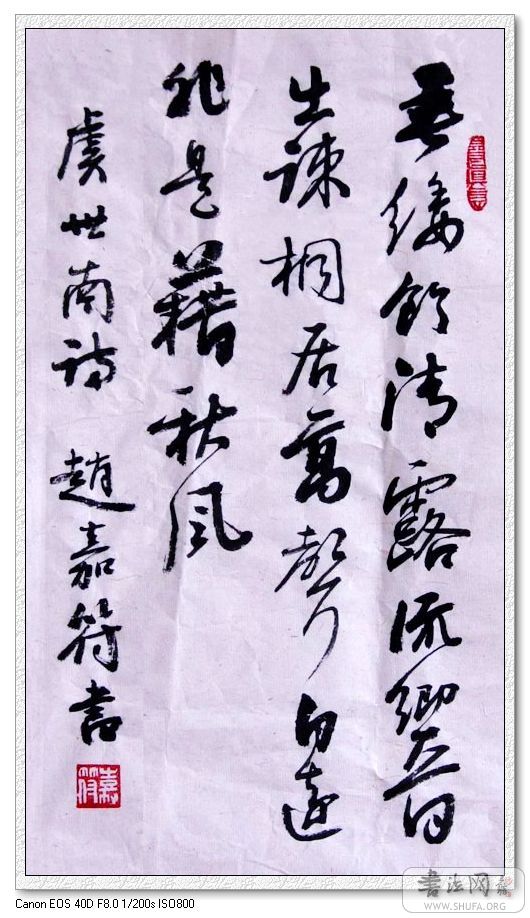 垂緌飲清露流響
出疎桐居高聲自遠
非是藉秋風
虞世南詩 趙嘉符書
嘉符
书法网
WWW.SHUFA.ORG
Canon EOS 40D F8.0 1/200s ISO800